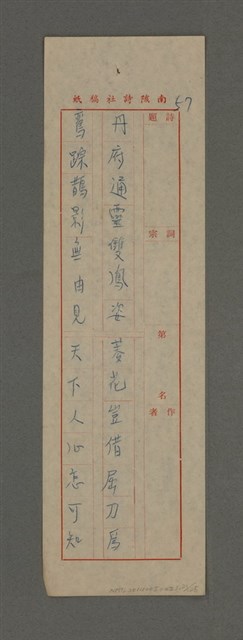 南陔詩社稿紙
57
詩題
詞宗
第 名
作者
丹府通靈雙鳳姿 菱花豈借屈刀為
鸞踪鵲影無由見 天下人心忘可知